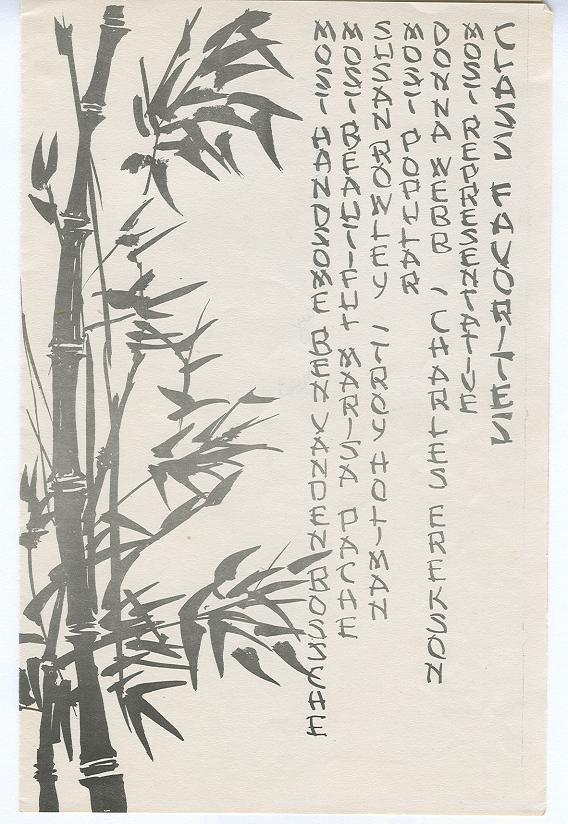 CLASS FAVORITES
MOST REPRESENTATIVE
DONNA WEBB , CHARLES EREKSON
MOST POPULAR
SUSAN ROWLEY , TROY HOLIMAN
MOST BEAUTIFUL MARISA PACHE
MOST HANDSOME BEN VANDENBOSSCHE